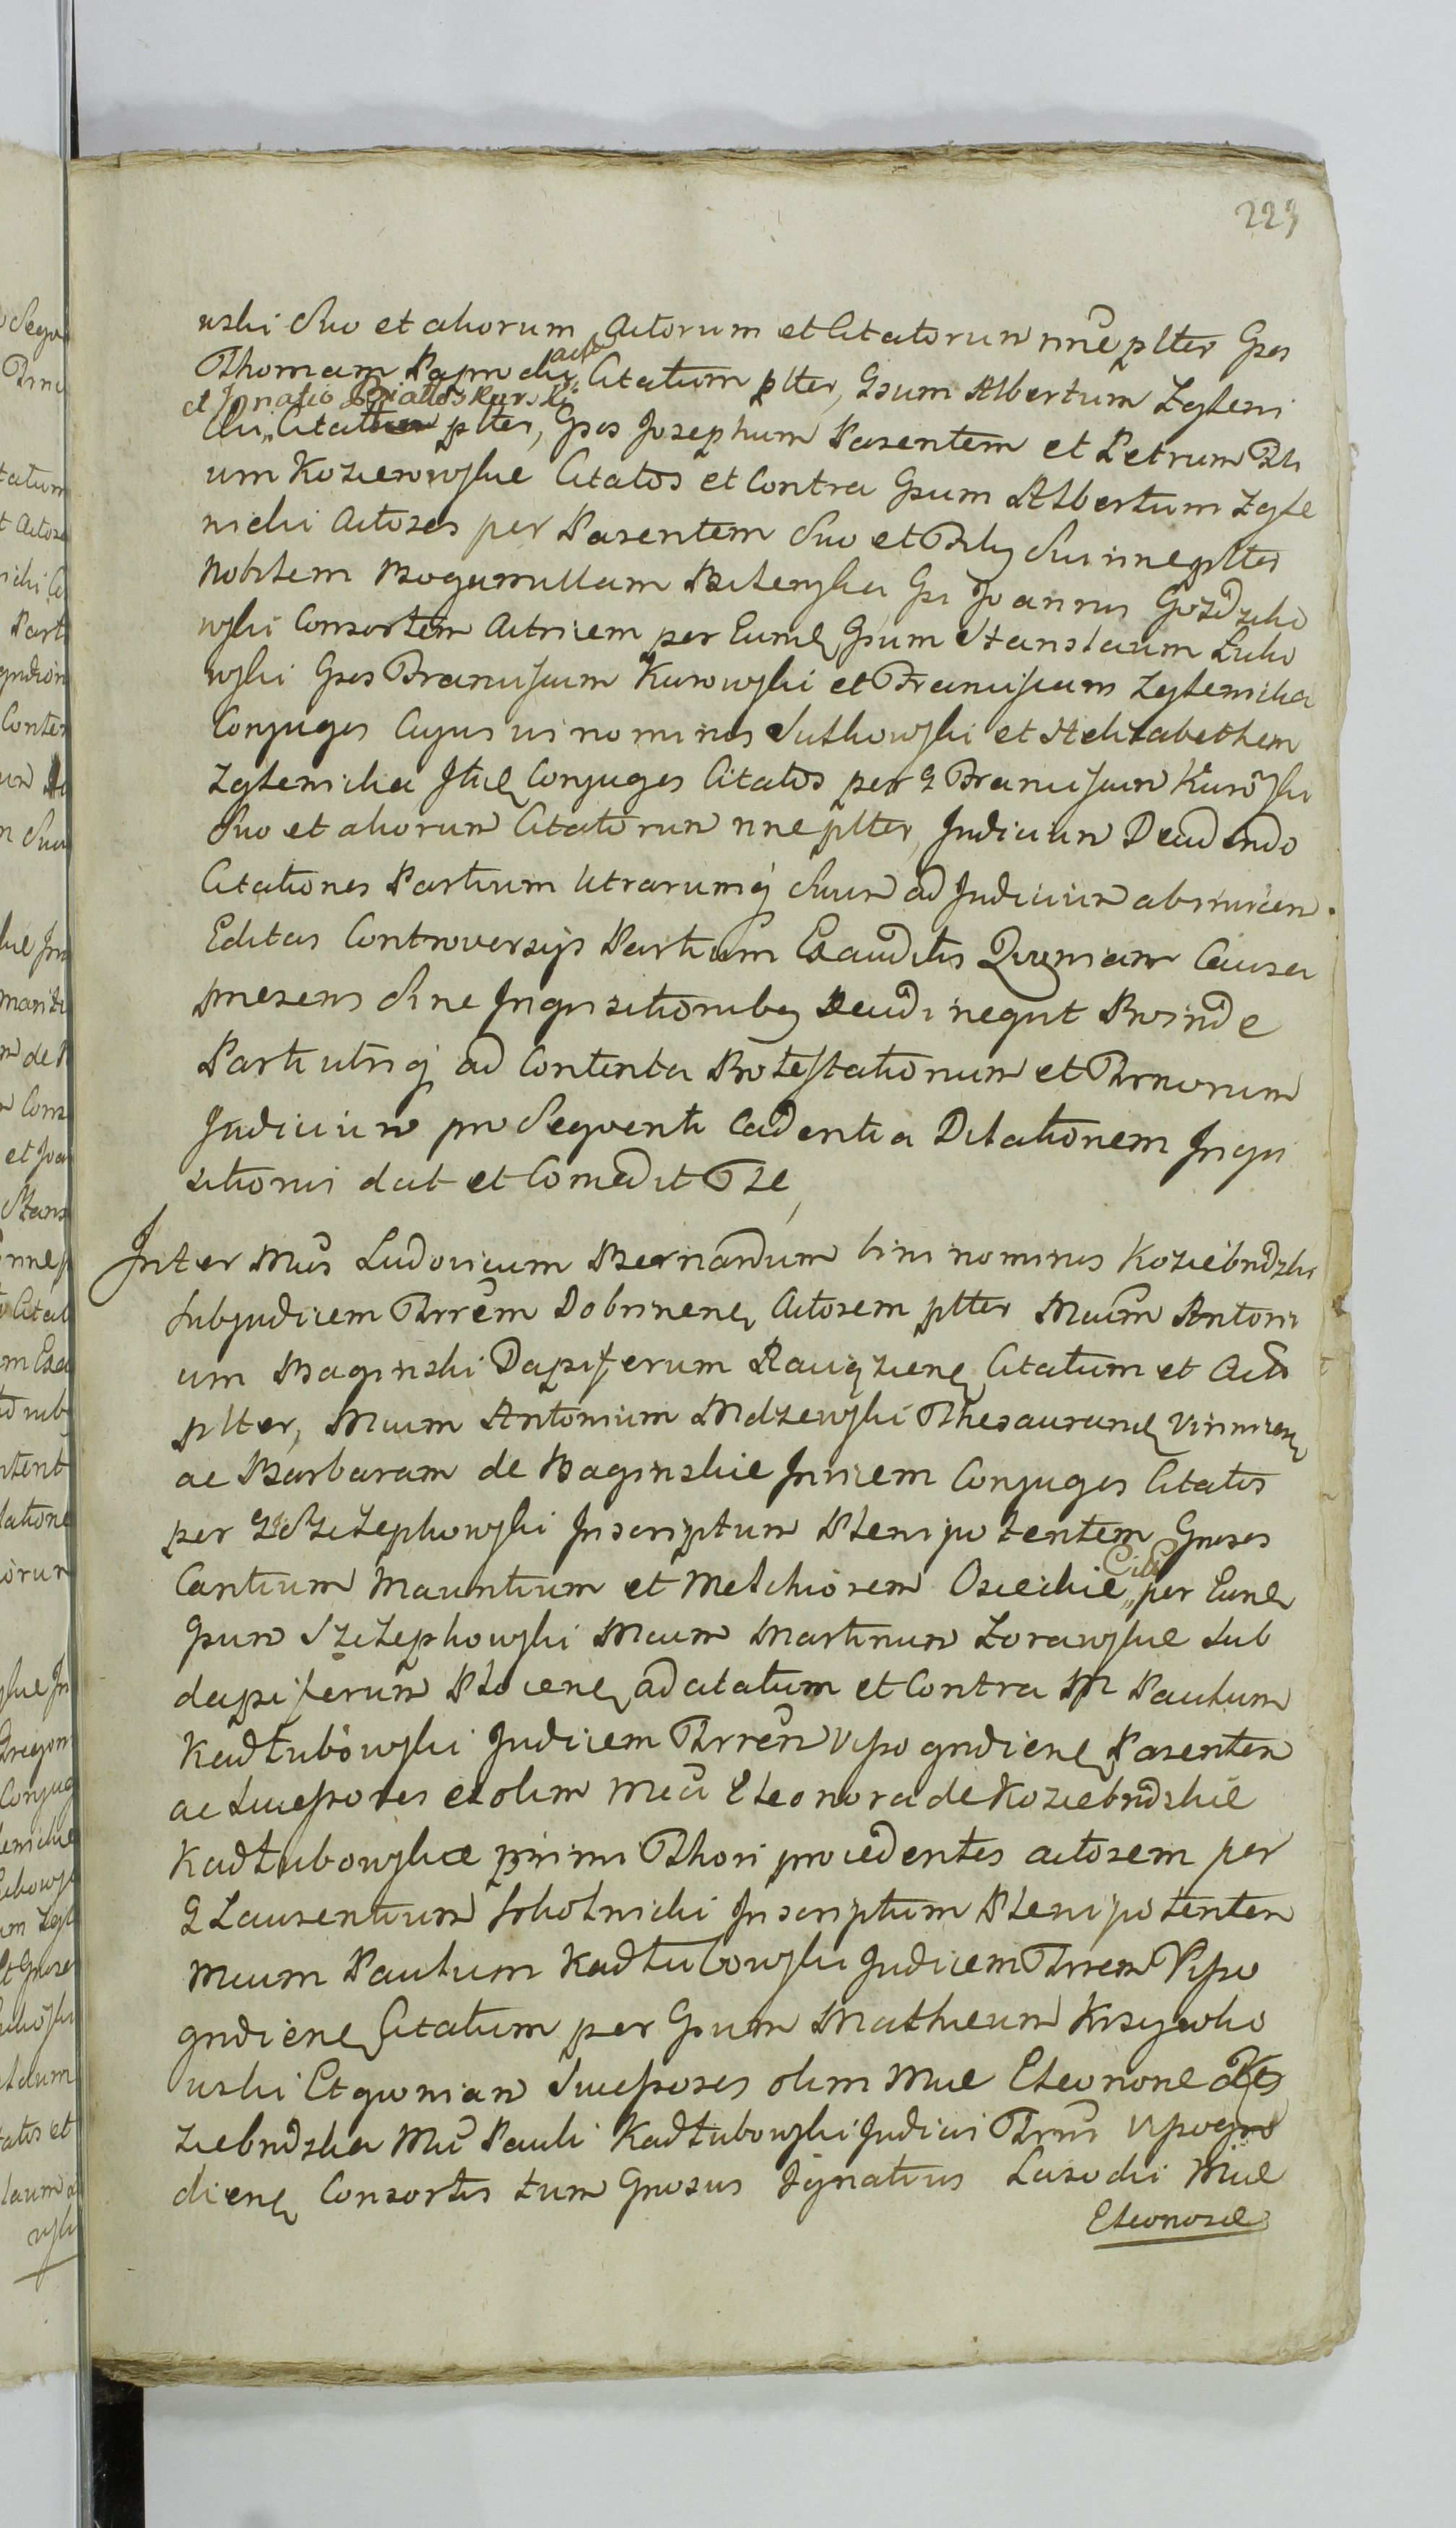 223
wski Suo et aliorum Actorum et Citatorum nne plter Gsos
Thomam Paprocki acto Citatum plter, Gsum Albertum Zgleni
et Ignatio Białoskurski
cki, Citatum plter, Gsos Josephum Parentem et Petrum Fili
um Kozierowskie Citatos et Contra Gsum Albertum Zgle
nicki Actores per Parentem Suo et Filij Sui nne plter
Nobilem Bogumillam Bilenska Gsi Joannis Gozdziko
wski Consortem Actricem per Eund Gsum Stanislaum Luko
wski Gsos Franciscum Kurowski et Franciscam Zglenicka
Conjuges Cujusvis nominis Sutkowski et Helisabethem
Zglenicka Itid Conjuges Citatos per G Franciscum Kurowski
Suo et aliorum Citatorum nne plter, Judicium Decidendo
Citationes Partium Utrarumq Suum ad Judicium abinvicem
Editas Controversijs Partium Exauditis Quoniam Causa
presens Sine Inquisitionibq Decidi nequit Proinde
Parti utriq ad Contenta Protestationum et Termorum
Judicium pro Sequenti Cadentia Dilationem Inqui
sitionis dat et Concedit Tse,
Inter Mcos Ludovicum Bernardum bini nominis Koziebrodzki
Subjudicem Trrem Dobrinen Actorem plter Mcum Antoni
um Baginski Dapiferum Raciązien Citatum et Acto
plter, Mcum Antonium Mdzewski Thesauran Visnicen
ac Barbaram de Baginskie Invicem Conjuges Citatos
per G Szczepkowski Inscriptum Plenipotentem Gnosos
Cantium Mauritium et Melchiorem Osieckie Citt per Eund
Gsum Szczepkowski Mcum Martinum Zorawskie Sub
dapiferum Plocen adcitatum et Contra M Paulum
Kadłubowski Judicem Trren Vyssogrodien Parentem
ac Successores ex olim Mca Eleonora de Koziebrodzkie
Kadłubowskie primi Thori procedentes actorem per
G Laurentium Sokolnicki Inscriptum Plenipotenten
Mcum Paulum Kadłubowski Judicem Trrem Vysso
grodien Citatum per Gsum Mathieum Krzywko
wski Et quoniam Successores olim Mcae Eleonorae de Ko
ziebrodzka Mci Pauli Kadłubowski Judicis Trris Vyssogro
dien Consortis tum Gnosus Ignatius Lasocki Mcae
Eleonorae